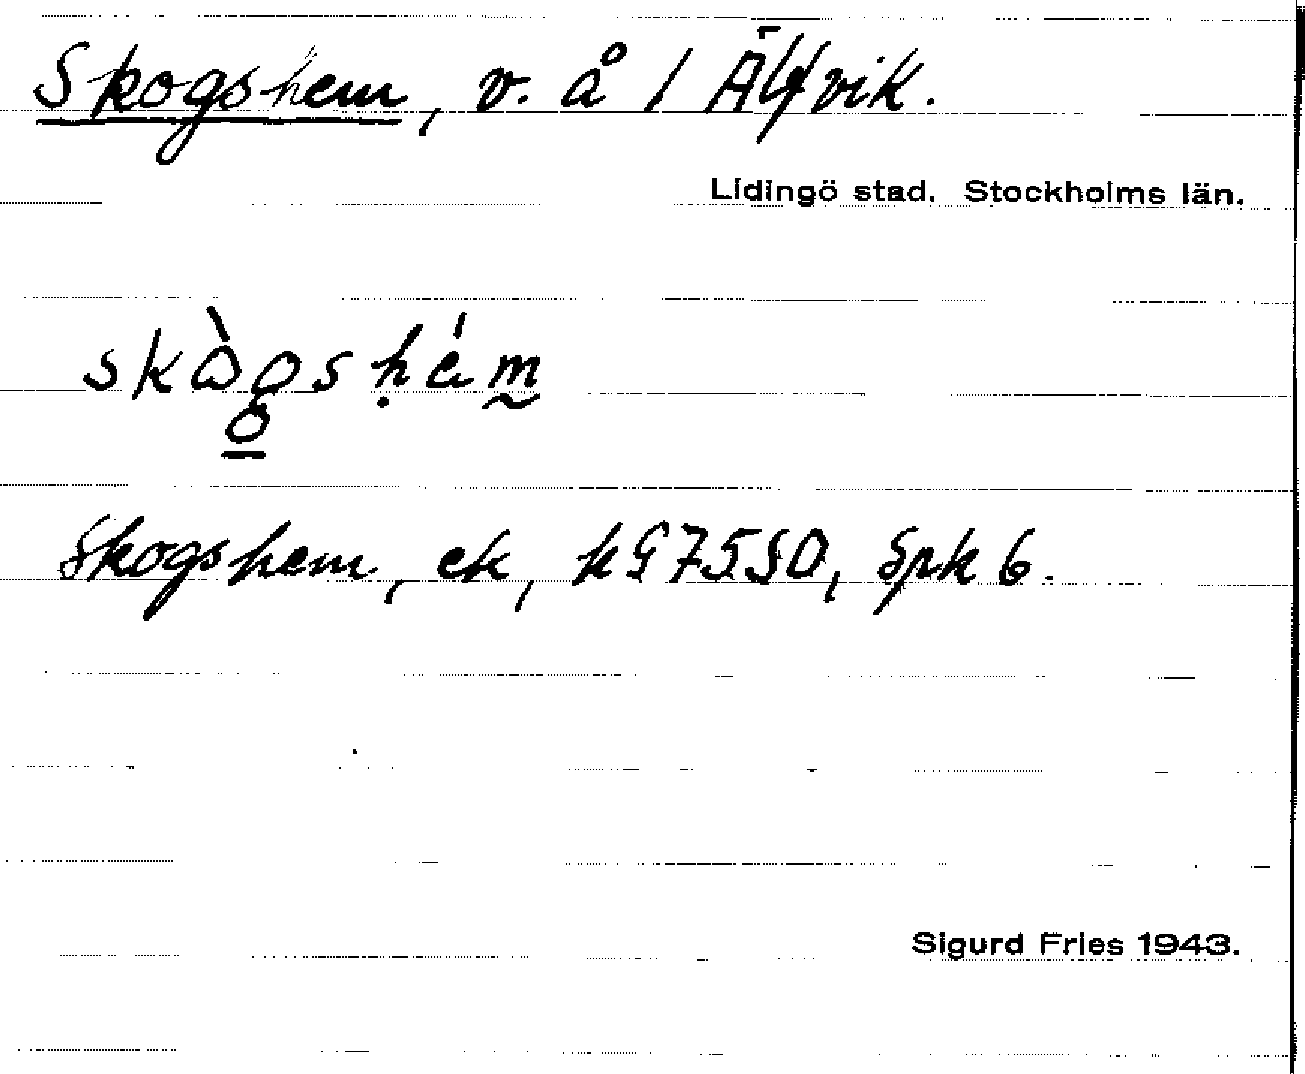 Skogshem, v. å 1 Älfvik.
Lidingö stad. Stockholms län.
skògshém
Skogshem, ek, Spk 6.
Sigurd Fries 1943.